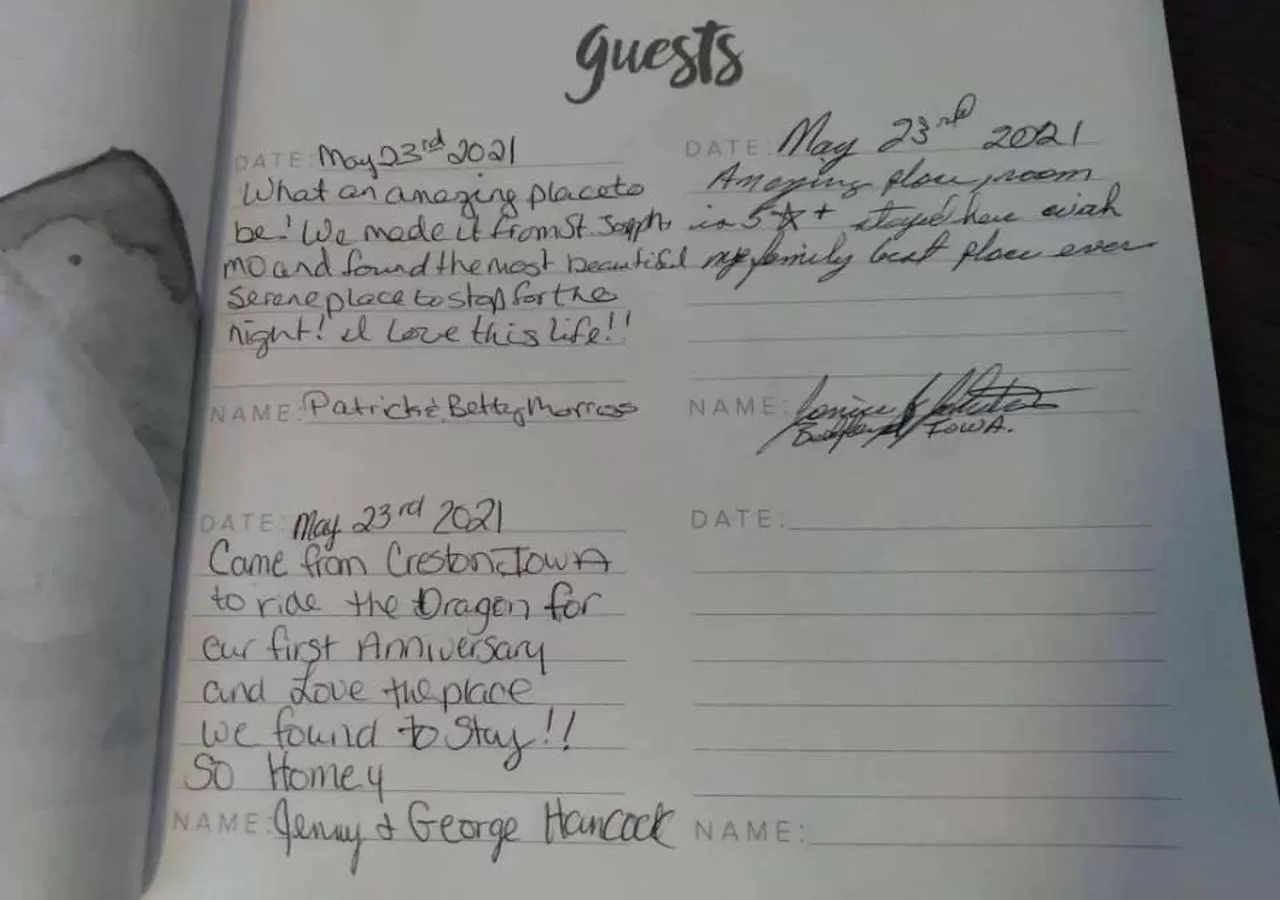 guests
DATE: May 23rd 2021
What an amazing place to
be! We made it from St. Joseph
MO and found the most beautiful
serene place to stop for the
night! I Love this life!!
NAME: Patrick & Betty
DATE: May 23rd 2021
Amazing place, room
is 5☆+ stayed here with
my family best place ever
NAME:
IOWA.
DATE: May 23rd 2021
Came from Creston, IOWA
to ride the Dragon for
our first Anniversary
and Love the place
we found to Stay!!
So Homey
NAME: Jenny & George Hancock
DATE:
NAME: